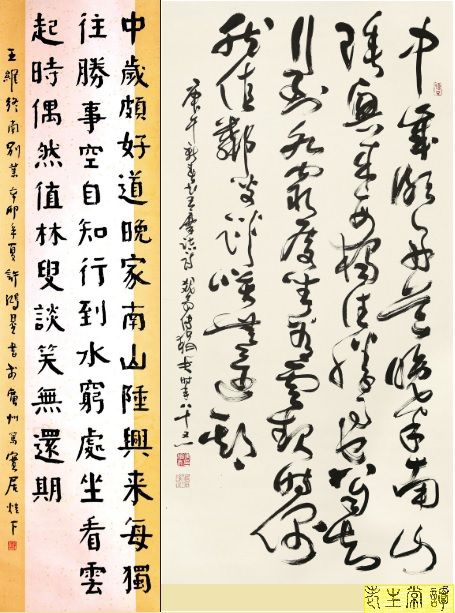 中歲頗好道晚家南山
陲興来每獨往勝事空自知
行到水窮處坐看雲起時偶
然值鄰叟談笑無還期
庚午新春書王摩詰詩 時年八十五
中歲頗好道晚家南山陲興来每獨
往勝事空自知行到水窮處坐看雲
起時偶然值林叟談笑無還期
王維終南別業辛卯年夏許鴻書於廣州寓實居燈下
老生常譚